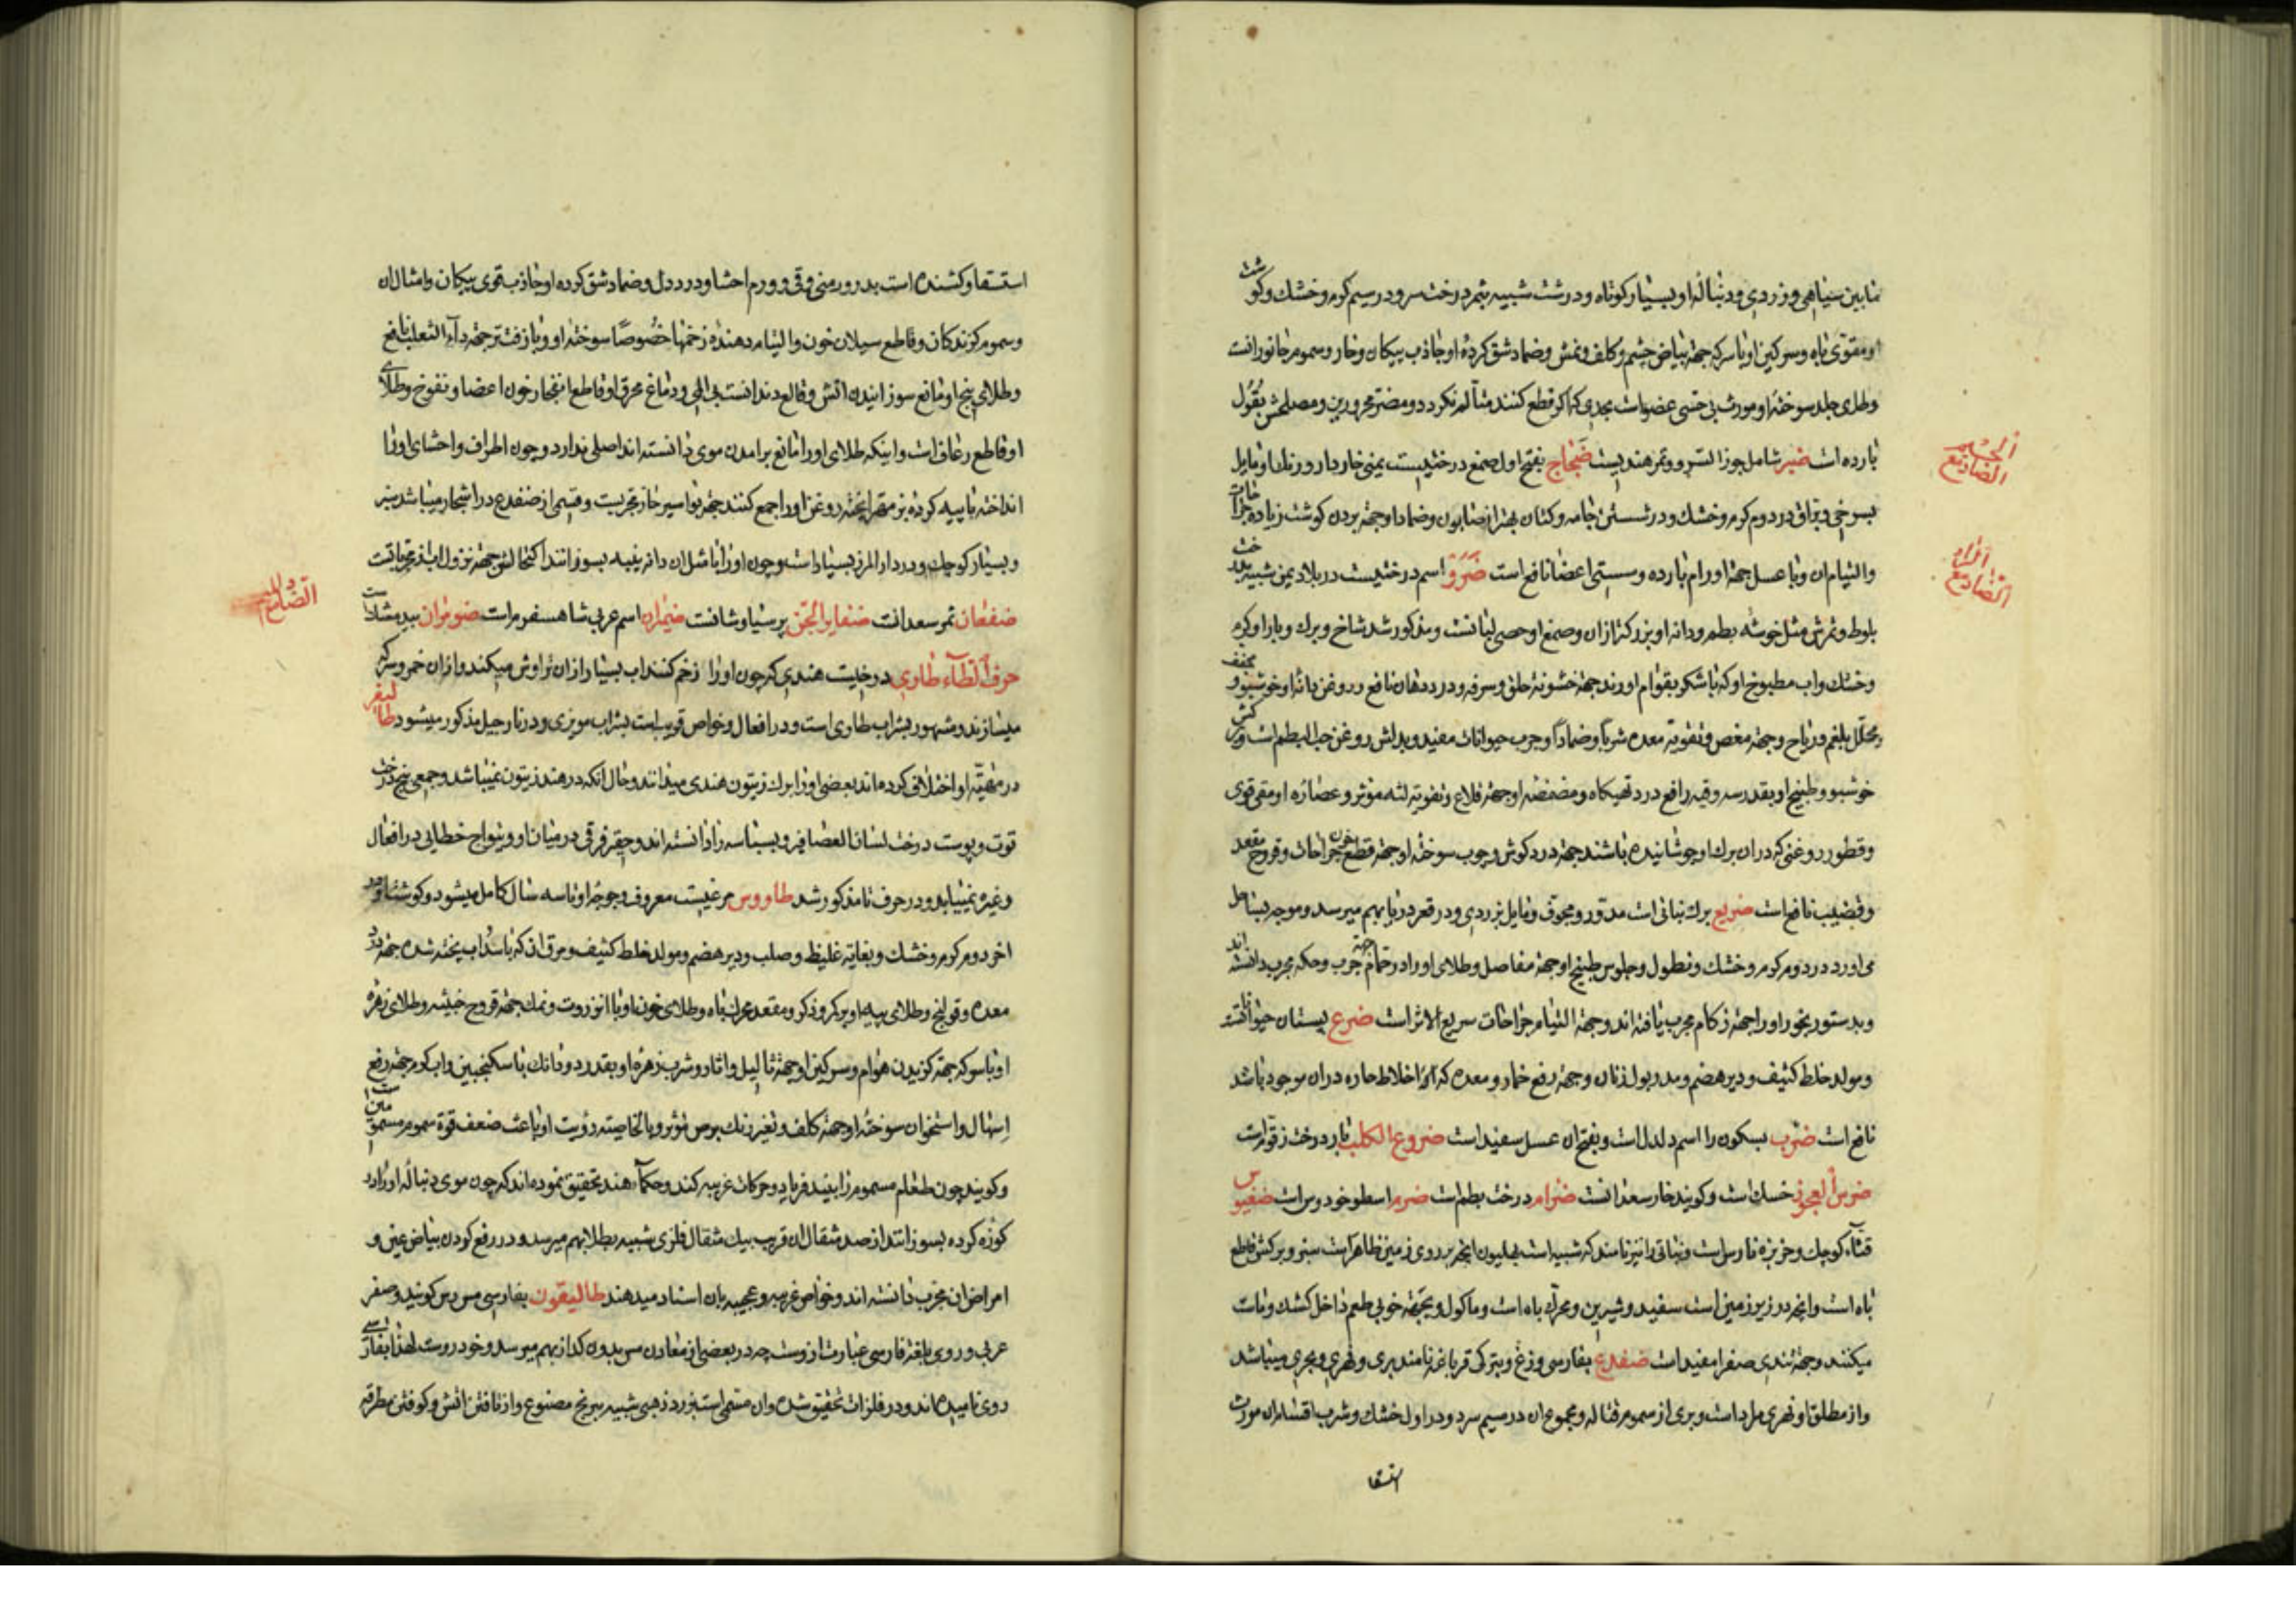 مابین سیاهی و زردی و دنباله او بسیار کوتاه و درشت شبیه بثمر درخت سرو در سیم کرم و خشک و کوشت
او مقوی باه و سرکین او با سرکه جهة بیاض چشم و کلف و نمش و ضماد شق کرده او جاذب پیکان و خار و سموم جانورانست
وطلای جلد سوخته او مورث بی حسی عضو است بحدی که اکر قطع کنند متألم نکردد و مضر محرورین و مصلحش بقول
بارده است ضبر شامل جوز السرو و تمر هندیست ضجاج بفتح اول صمغ درختیست یمنی خاردار و رنک او مایل
بسرخی و براق در دوم کرم و خشک و در شستن جامه و کتان بهتر از صابون و ضماد او جهة بردن کوشت زیاده جراحات
والتیام ان وبا عسل جهة اورام بارده و سستی اعضا نافع است ضرو اسم درختیست در بلاد یمن شبیه بدرخت
بلوط و ثمرش مثل خوشه بطم و دانه او بزرکتر ازان و صمغ او حصی لبانست و مذکور شد شاخ و برک و بار او کرم
و خشک و اب مطبوخ او که با شکر بقوام اورند جهة خشونة حلق و سرفه و درد دهان نافع و روغن دانه او خوشبو و مجفف
و محلل بلغم و ریاح و جهة مغص و تقویة معده شربا و ضمادا و جرب حیوانات مفید و بدلش روغن حب البطم است و
خوشبو و طبیخ او بقدر سه وقیه رافع درد تهیکاه و مضمضه او جهة قلاع و تقویة لثه موثر و عصاره او مقی قوی
و قطور روغنی که در ان برک او جوشانیده باشند جهة درد کوش و چوب سوخته او جهة قطع خون جراحات و قروح مقعد
و قضیب نافع است ضریع برک نباتی است مدور و مجوف و مایل بزردی و در قعر دریا بهم میرسد و موجه بساحل
می اورد در دوم کرم و خشک و نطول و جلوس طبیخ او جهة مفاصل و طلای او در حمام جهة جرب و حکه مجرب دانسته اند
و بدستور بخور او را جهة زکام مجرب یافته اند و جهة التیام جراحات سریع الاثر است ضرع پستان حیوانات
و مولد خلط کثیف و دیر هضم و مدر بول زنان و جهة رفع خمار و معده که اخلاط حاره در ان موجود باشد
نافع است ضرب بسکون را اسم دلدل است و بفتح ان عسل سفید است ضروع الکلب بار درخت زقوم است
ضرس العجوز خسک است و کویند خار سعدانست ضرام درخت بطم است ضرم اسطوخودوس است ضغبوس
قثاء کوچک و خربزه نارس است و نباتی را نیز نامند که شبیه است بهلیون انچه بر روی زمین ظاهر است سبز و برکش قاطع
باه است و انچه در زیر زمین است سفید و شیرین و محرک باه است و ماکول و بجهة خوبی طعم داخل کشک و ماست
میکنند و جهة تندی صفرا مفید است ضفدع بفارسی وزغ و بترکی قرباغه نامند بری و نهری و بحری میباشد
و از مطلق او نهری مراد است و بری از سموم قتاله و مجموع ان در سیم سرد و در اول خشک و شرب اقسام ان مورث
استسقا
الضاد مع
الضاد مع الراء
استسقا و کشنده است بدرور منی و قی و ورم احشا و درد دل و ضماد شق کرده او جاذب قوی پیکان و امثال ان
و سموم کزندکان و قاطع سیلان خون و التیام دهنده زخمها خصوصا سوخته او و با زفت تر جهة داء الثعلب نافع
و طلای پنج او مانع سوزانیدن اتش و قالع دندانست بی الم و دماغ محرق او قاطع انفجار خون اعضا و نفوخ و طلای
او قاطع رعاف است و اینکه طلای او را مانع برامدن موی دانسته اند اصلی ندارد و چون اطراف و احشای او را
انداخته با پیه کرده بز مهرا پخته روغن او را جمع کنند جهة بواسیر خار مجربست و قسمی از ضفدع در اشجار میباشد سبز
و بسیار کوچک و در دار المرز بسیار است و چون او را با مثل ان دانه پنبه بسوزانند اکتحالش جهة نزول اب از مجرباتست
ضفغان ثمر سعدانست ضفایر الجن پرسیاوشانست ضیمران اسم عربی شاهسفرم است ضومران بید مشک است
حرف الطاء طاوی درختیست هندی که چون او را زخم کنند اب بسیار از ان تراوش میکند و ازان خمر و سرکه
میسازند و مشهور بشراب طاوی است و در افعال و خواص قریب است بشراب مویزی و در نارجیل مذکور میشود طالیفر
در مهیة او اختلاف کرده اند بعضی او را برک زیتون هندی میدانند و حال انکه در هند زیتون نمیباشد و جمعی پنج درخت
توت و پوست درخت لسان العصافیر و بسباسه را دانسته اند و حقیر فرقی در میان او و پنواج خطایی در افعال
و غیره نمییابد و در حرف تا مذکور شد طاووس مرغیست معروف و جوجه او تا سه سال کامل میشود و کوشت او در
اخر دوم کرم و خشک و بغایة غلیظ و صلب و دیر هضم و مولد خلط کثیف و مرق ان که با سداب پخته شده جهة درد
معده و قولنج و طلای پیه او بر کر و ذکر و مقعد محرک باه و طلای خون او با انزروت و نمک جهة قروح خبیثه و طلای زهره
او با سرکه جهة کزیدن هوام و سرکین او جهة ثالیل و اثار و شرب زهره او بقدر دو دانک با سکنجبین و اب کرم جهة رفع
اسهال و استخوان سوخته او جهة کلف و تغیر رنک برص موثر و بالخاصیة رؤیت او باعث ضعف قوة سموم مسمومین است
و کویند چون طعام مسموم را بیند فریاد و حرکات غریبه کند و حکماء هند تحقیق نموده اند که چون موی دنباله او را در
کوزه کرده بسوزانند از صد مثقال ان قریب بیک مثقال فلزی شبیه بطلا بهم میرسد و در رفع کردن بیاض عین و
امراض ان مجرب دانسته اند و خواص غریبه و عجیبه بان اسناد میدهند طالیقون بفارسی مس رس کویند و صفر
عربی و روی بلغة فارسی عبارت ازوست چه در بعضی از معادن مس بدون کداز بهم میرسد و خودروست لهذا بفارسی
روی نامیده اند و در فلزات تحقیق شده و ان مسمی است بزرد ذهبی شبیه ببرنج مصنوع و از تافتن اتش و کوفتن مطرقه